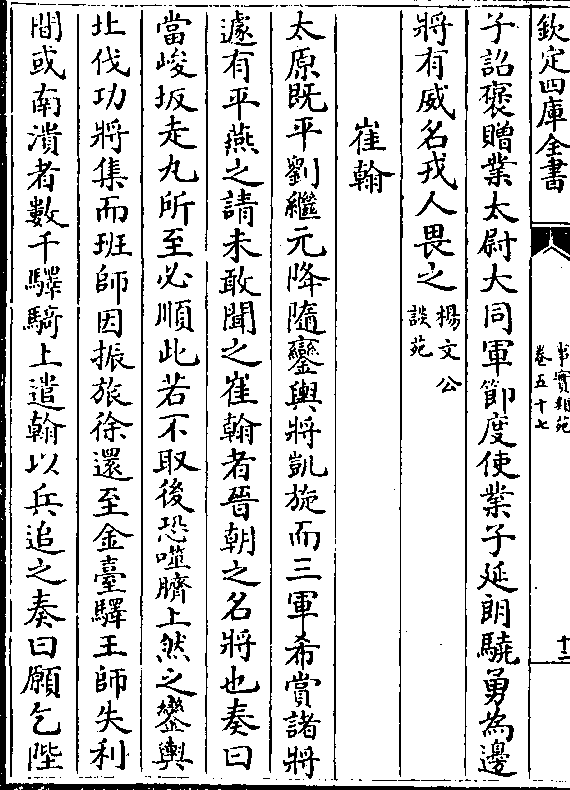 欽定四庫全書
事實類苑
卷五十七
十二
子詔褒贈業太尉大同軍節度使業子延朗驍勇為邊
將有威名戎人畏之楊文公
談苑
崔翰
太原既平劉繼元降隨鑾輿將凱旋而三軍希賞諸將
遽有平燕之請未敢聞之崔翰者晉朝之名將也奏曰
當峻坂走丸所至必順此若不取後恐噬臍上然之鑾輿
北伐功將集而班師因振旅徐還至金臺驛王師失利
間或南潰者數千驛騎上遣翰以兵追之奏曰願乞陛